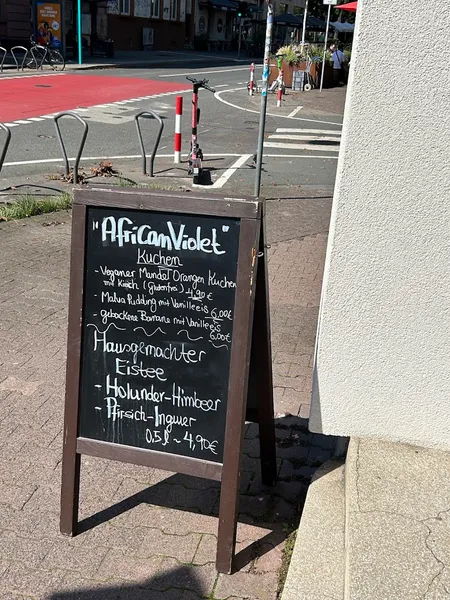 "AfriCanViolet"
Kuchen
- Veganer Mandel Orangen Kuchen
mit Kirsch (Glutenfrei) 4,90 €
- Malva Pudding mit Vanilleeis 6,00€
- gebackene Banane mit Vanilleeis
6,00€
Hausgemachter
Eistee
- Holunder-Himbeer
- Pfirsich-Ingwer
0,5l ~ 4,90€